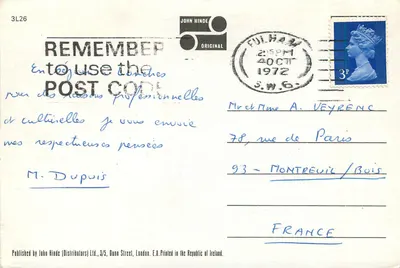 3L26
JOHN HINDE
ORIGINAL
REMEMBER
to use the
POST CODE
FULHAM
2:15PM
4 OCT
1972
S.W.6.
3P
En
à Londres
pour des raisons professionnelles
et culturelles je vous envoie
mes respectueuses pensées
M. Dupuis
Mr et Mme A. VEYRENC
78, rue de Paris
93 - MONTREUIL/Bois
FRANCE
Published by John Hinde (Distributors) Ltd., 3/5, Dunn Street, London. E.8. Printed in the Republic of Ireland.